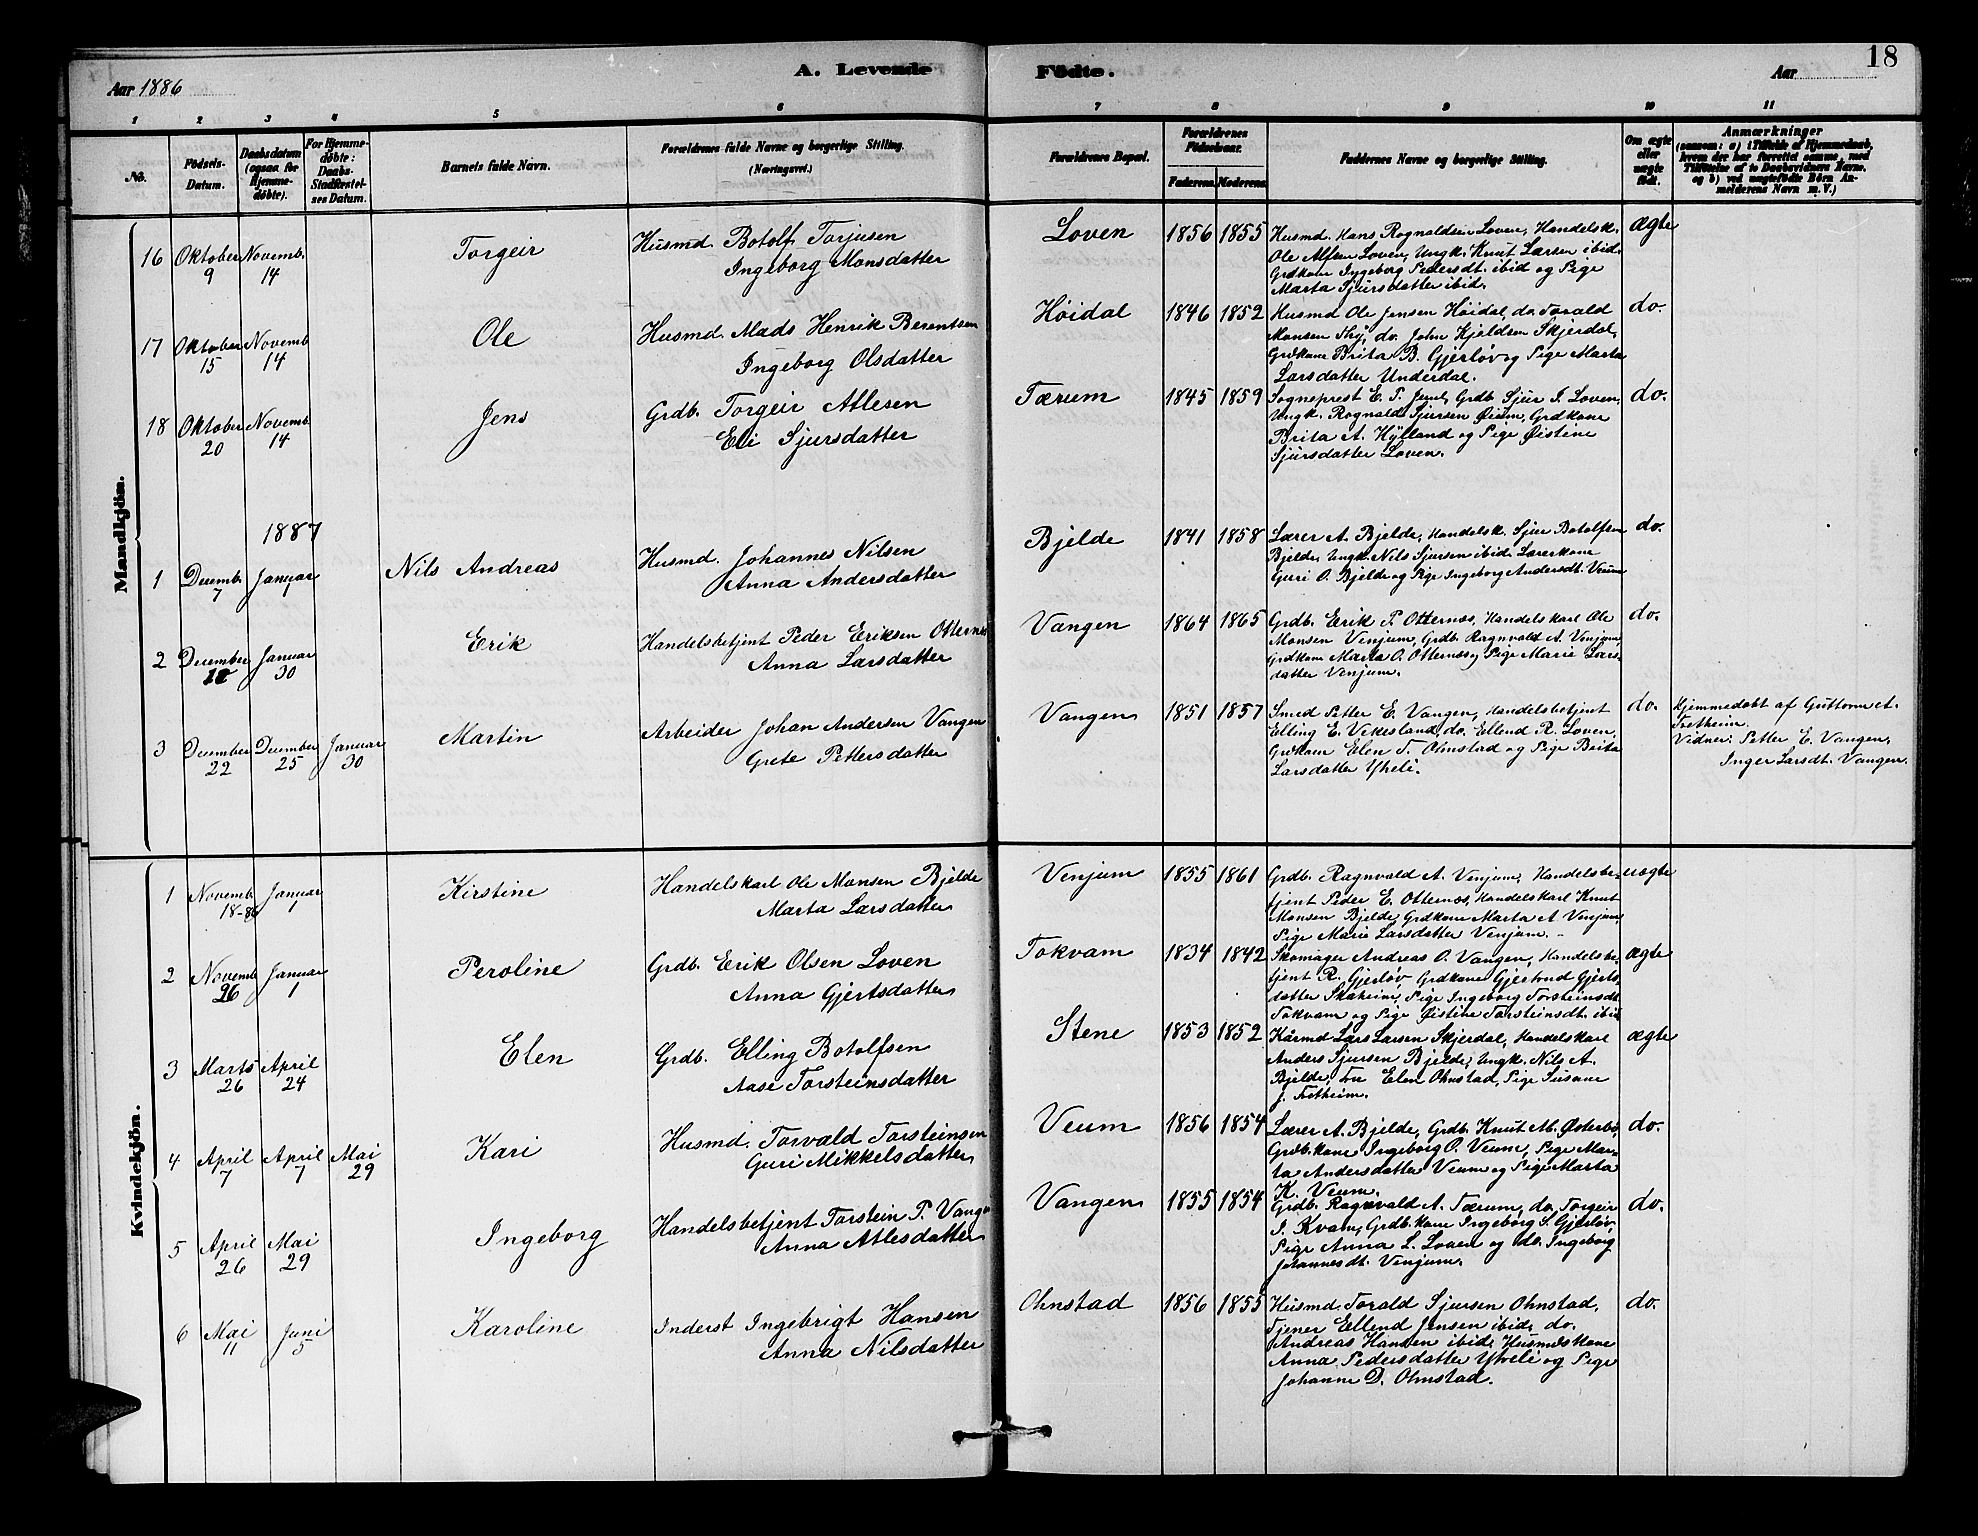 Aar 1886
A. Levende
Födte.
Aar
18
1 2 3 4 5 6 7 8 9 10 11
No.
Födsels-
Datum.
Daabsdatum
(ogsaa for
Hjemme-
döbte).
For Hjemme-
döbte:
Daabs-
Stadfæstel-
ses Datum.
Barnets fulde Navn.
Forældrenes fulde Navne og borgerlige Stilling.
(Næringsvei.)
Forældrenes Bopæl.
Forældrenes
Födselsaar.
Faderens. Moderens.
Faddernes Navne og borgerlige Stilling.
Om ægte
eller
uægte
födt.
Anmærkninger
(saasom: a) i Tilfælde af Hjemmedaab,
hvem der har forrettet samme, med
Tilföielse af to Daabsvidners Navne,
og b) ved uægtefödte Börn An-
melderens Navn m. V.)
Mandkjön.
16 Oktober 9 Novemb. 14 Torgeir Husmd. Botolf Torjusen
Ingeborg Monsdatter
Loven 1856 1855 Husmd. Hans Rognaldsen Loven, Handelsk.
Ole Alfsen Loven, Ungk. Knut Larsen ibid.
Grdkone Ingeborg Pedersdt. ibid og Pige
Marta Sjursdatter ibid.
ægte
17 Oktober 15 Novemb 14 Ole Husmd. Mads Henrik Berentsen
Ingeborg Olsdatter
Høidal 1846 1852 Husmd Ole Jensen Høidal, do. Torvald
Monsen Thy, do. John Kjeldsen Skjerdal,
Grdkone Brita B. Gjerløv og Pige Marta
Larsdatter Underdal.
do.
18 Oktober 20 Novemb 14 Jens Grdb. Torgeir Atlesen
Eli Sjursdatter
Tærum 1845 1859 Sogneprest E. T. Juul, Grdb. Sjur I. Loven,
Ungk. Rognald Sjursen Øium, Grdkone
Brita A. Hylland og Pige Øistine
Sjursdatter Loven.
do.
1887
1 Decemb. 7 Januar 1 Nils Andreas Husmd. Johannes Nilsen
Anna Andersdatter
Bjelde 1841 1858 Lærer A. Bjelde, Handelsk. Sjur Botolfsen
Bjelde, Ungk. Nils Sjursen ibid. Lærerkone
Guri O. Bjelde og Pige Ingeborg Andersdt. Veum
do.
2 December 18 Januar 30 Erik Handelsbetjent Peder Eriksen Otternes
Anna Larsdatter
Vangen 1864 1865 Grdb. Erik P. Otternes, Handelskarl Ole
Monsen Venjum, Grdb. Ragnvald A. Venjum
Grdkone Marta O. Otternes og Pige Marie Lars-
datter Venjum.
do.
3 December 22 December 25 Januar 30 Martin Arbeider Johan Andersen Vangen
Grete Pettersdatter
Vangen 1851 1857 Smed Petter E. Vangen, Handelsbetjent
Elling E. Vikesland, do. Ellend R. Loven,
Grdkone Elen T. Ohnstad og Pige Brita
Larsdatter Ytreli.
do. Hjemmedøbt af Guttorm A.
Fretheim.
Vidner: Petter E. Vangen,
Inger Larsdt. Vangen.
Kvindekjön.
1 Novemb 18-86 Januar 1 Kirstine Handelskarl Ole Monsen Bjelde
Marta Larsdatter
Venjum 1855 1861 Grdb. Ragnvald A. Venjum, Handelsbe-
tjent Peder E. Otternes, Handelskarl Knut
Monsen Bjelde, Grdkone Marta A. Venjum,
Pige Marie Larsdatter Venjum.
uægte
2 Novemb 26 Januar 1 Peroline Grdb. Erik Olsen Loven
Anna Gjertsdatter
Tokvam 1834 1842 Skomager Andreas O. Vangen, Handelsbe-
tjent R. Gjerløv, Grdkone Gjertrud Gjerts-
datter Skaheim, Pige Ingeborg Torsteinsdt.
Tokvam og Pige Øistine Torsteinsdt. ibid
ægte
3 Marts 26 April 24 Elen Grdb. Elling Botolfsen
Aase Torsteinsdatter
Stene 1853 1852 Kårmd Lars Larsen Skjerdal, Handelskarl
Anders Sjursen Bjelde, Ungk. Nils A.
Bjelde, Fru Elen Ohnstad, Pige Susane
J. Fretheim.
ægte
4 April 7 April 7 Mai 29 Kari Husmd. Torvald Torsteinsen
Guri Mikkelsdatter
Veum 1856 1854 Lærer A. Bjelde, Grdb. Knut M. Østerbø,
Grdb.kone Ingeborg O. Veum, Pige Mar-
ta Andersdatter Veum og Pige Marta
K. Veum.
do.
5 April 26 Mai 29 Ingeborg Handelsbetjent Torstein P. Vangen
Anna Atlesdatter
Vangen 1855 1854 Grdb. Ragnvald A. Tærum, do. Torgeir
I. Kvam, Grdb.kone Ingeborg S. Gjerløv,
Pige Anna L. Loven og do. Ingeborg
Johannesdt. Venjum.
do.
6 Mai 11 Juni 5 Karoline Inderst Ingebrigt Hansen
Anna Nilsdatter
Ohnstad 1856 1855 Husmd. Torald Sjursen Ohnstad,
Tjener Ellend Jensen ibid, do.
Andreas Hansen ibid, Husmdskone
Anna Pedersdatter Ytreli og Pige
Johanne D. Ohnstad.
do.